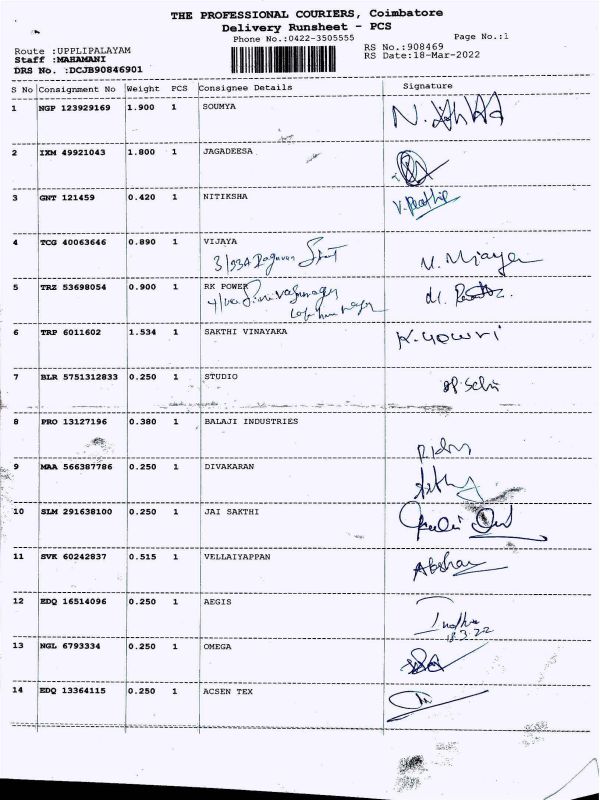 THE PROFESSIONAL COURIERS, Coimbatore
Delivery Runsheet - PCS
Phone No.:0422-3505555
Page No.:1
Route :UPPLIPALAYAM
RS No.:908469
Staff :MAHAMANI
RS Date:18-Mar-2022
DRS No. :DCJB90846901
S No Consignment No Weight PCS Consignee Details Signature
1 NGP 123929169 1.900 1 SOUMYA
2 IXM 49921043 1.800 1 JAGADEESA
3 GNT 121459 0.420 1 NITIKSHA
4 TCG 40063646 0.890 1 VIJAYA
5 TRZ 53698054 0.900 1 RK POWER
6 TRP 6011602 1.534 1 SAKTHI VINAYAKA K.Gowri
7 BLR 5751312833 0.250 1 STUDIO
8 PRO 13127196 0.380 1 BALAJI INDUSTRIES
9 MAA 566387786 0.250 1 DIVAKARAN
10 SLM 291638100 0.250 1 JAI SAKTHI
11 SVK 60242837 0.515 1 VELLAIYAPPAN
12 EDQ 16514096 0.250 1 AEGIS
18.3.22
13 NGL 6793334 0.250 1 OMEGA
14 EDQ 13364115 0.250 1 ACSEN TEX